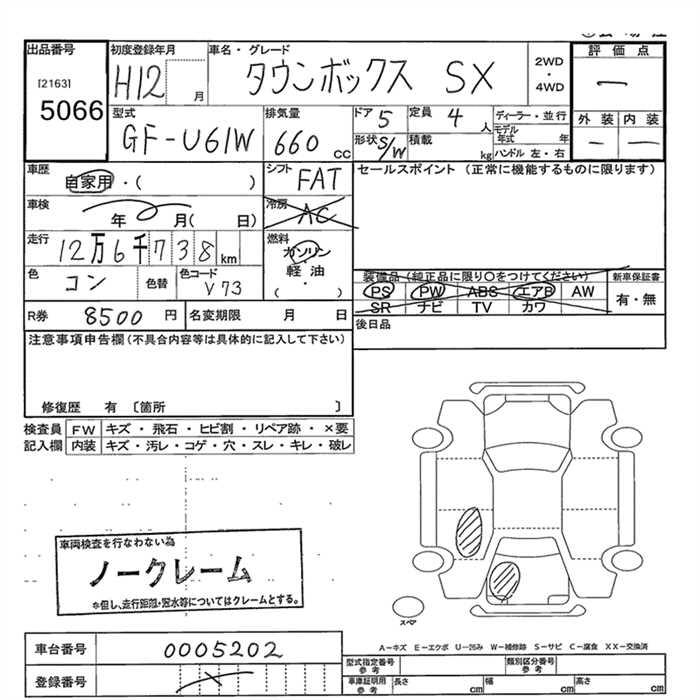 出品番号
[2163]
5066
初度登録年月
H12 月
車名・グレード
タウンボックス SX
2WD
・
4WD
評価点
ー
型式
GF-U61W
排気量
660 cc
ドア 5
定員 4 人
形状 S/W
積載 kg
ディーラー・並行
モデル年式 年
ハンドル 左・右
外装 内装
ー ー
車歴
自家用・( )
シフト
FAT
セールスポイント(正常に機能するものに限ります)
車検
年 月( 日)
冷房
AC
走行
12万6千738km
燃料
ガソリン
・
軽油
・
( )
色
コン
色替
色コード
V73
装備品(純正品に限り○をつけてください)
PS PW ABS エアB AW
SR ナビ TV カワ
新車保証書
有・無
R券 8500 円
名変期限 月 日
後日品
注意事項申告欄(不具合内容等は具体的に記入して下さい)
修復歴 有〔箇所 〕
検査員 FW キズ・飛石・ヒビ割・リペア跡・×要
記入欄 内装 キズ・汚レ・コゲ・穴・スレ・キレ・破レ
車両検査を行なわない為
ノークレーム
*但し、走行距離・冠水等についてはクレームとする。
スペア
A-キズ E-エクボ U-凹み W-補修跡 S-サビ C-腐食 XX-交換済
車台番号 0005202
登録番号
型式指定番号
参考
類別区分番号
参考
車庫証明用
参考
長さ cm
幅 cm
高さ cm